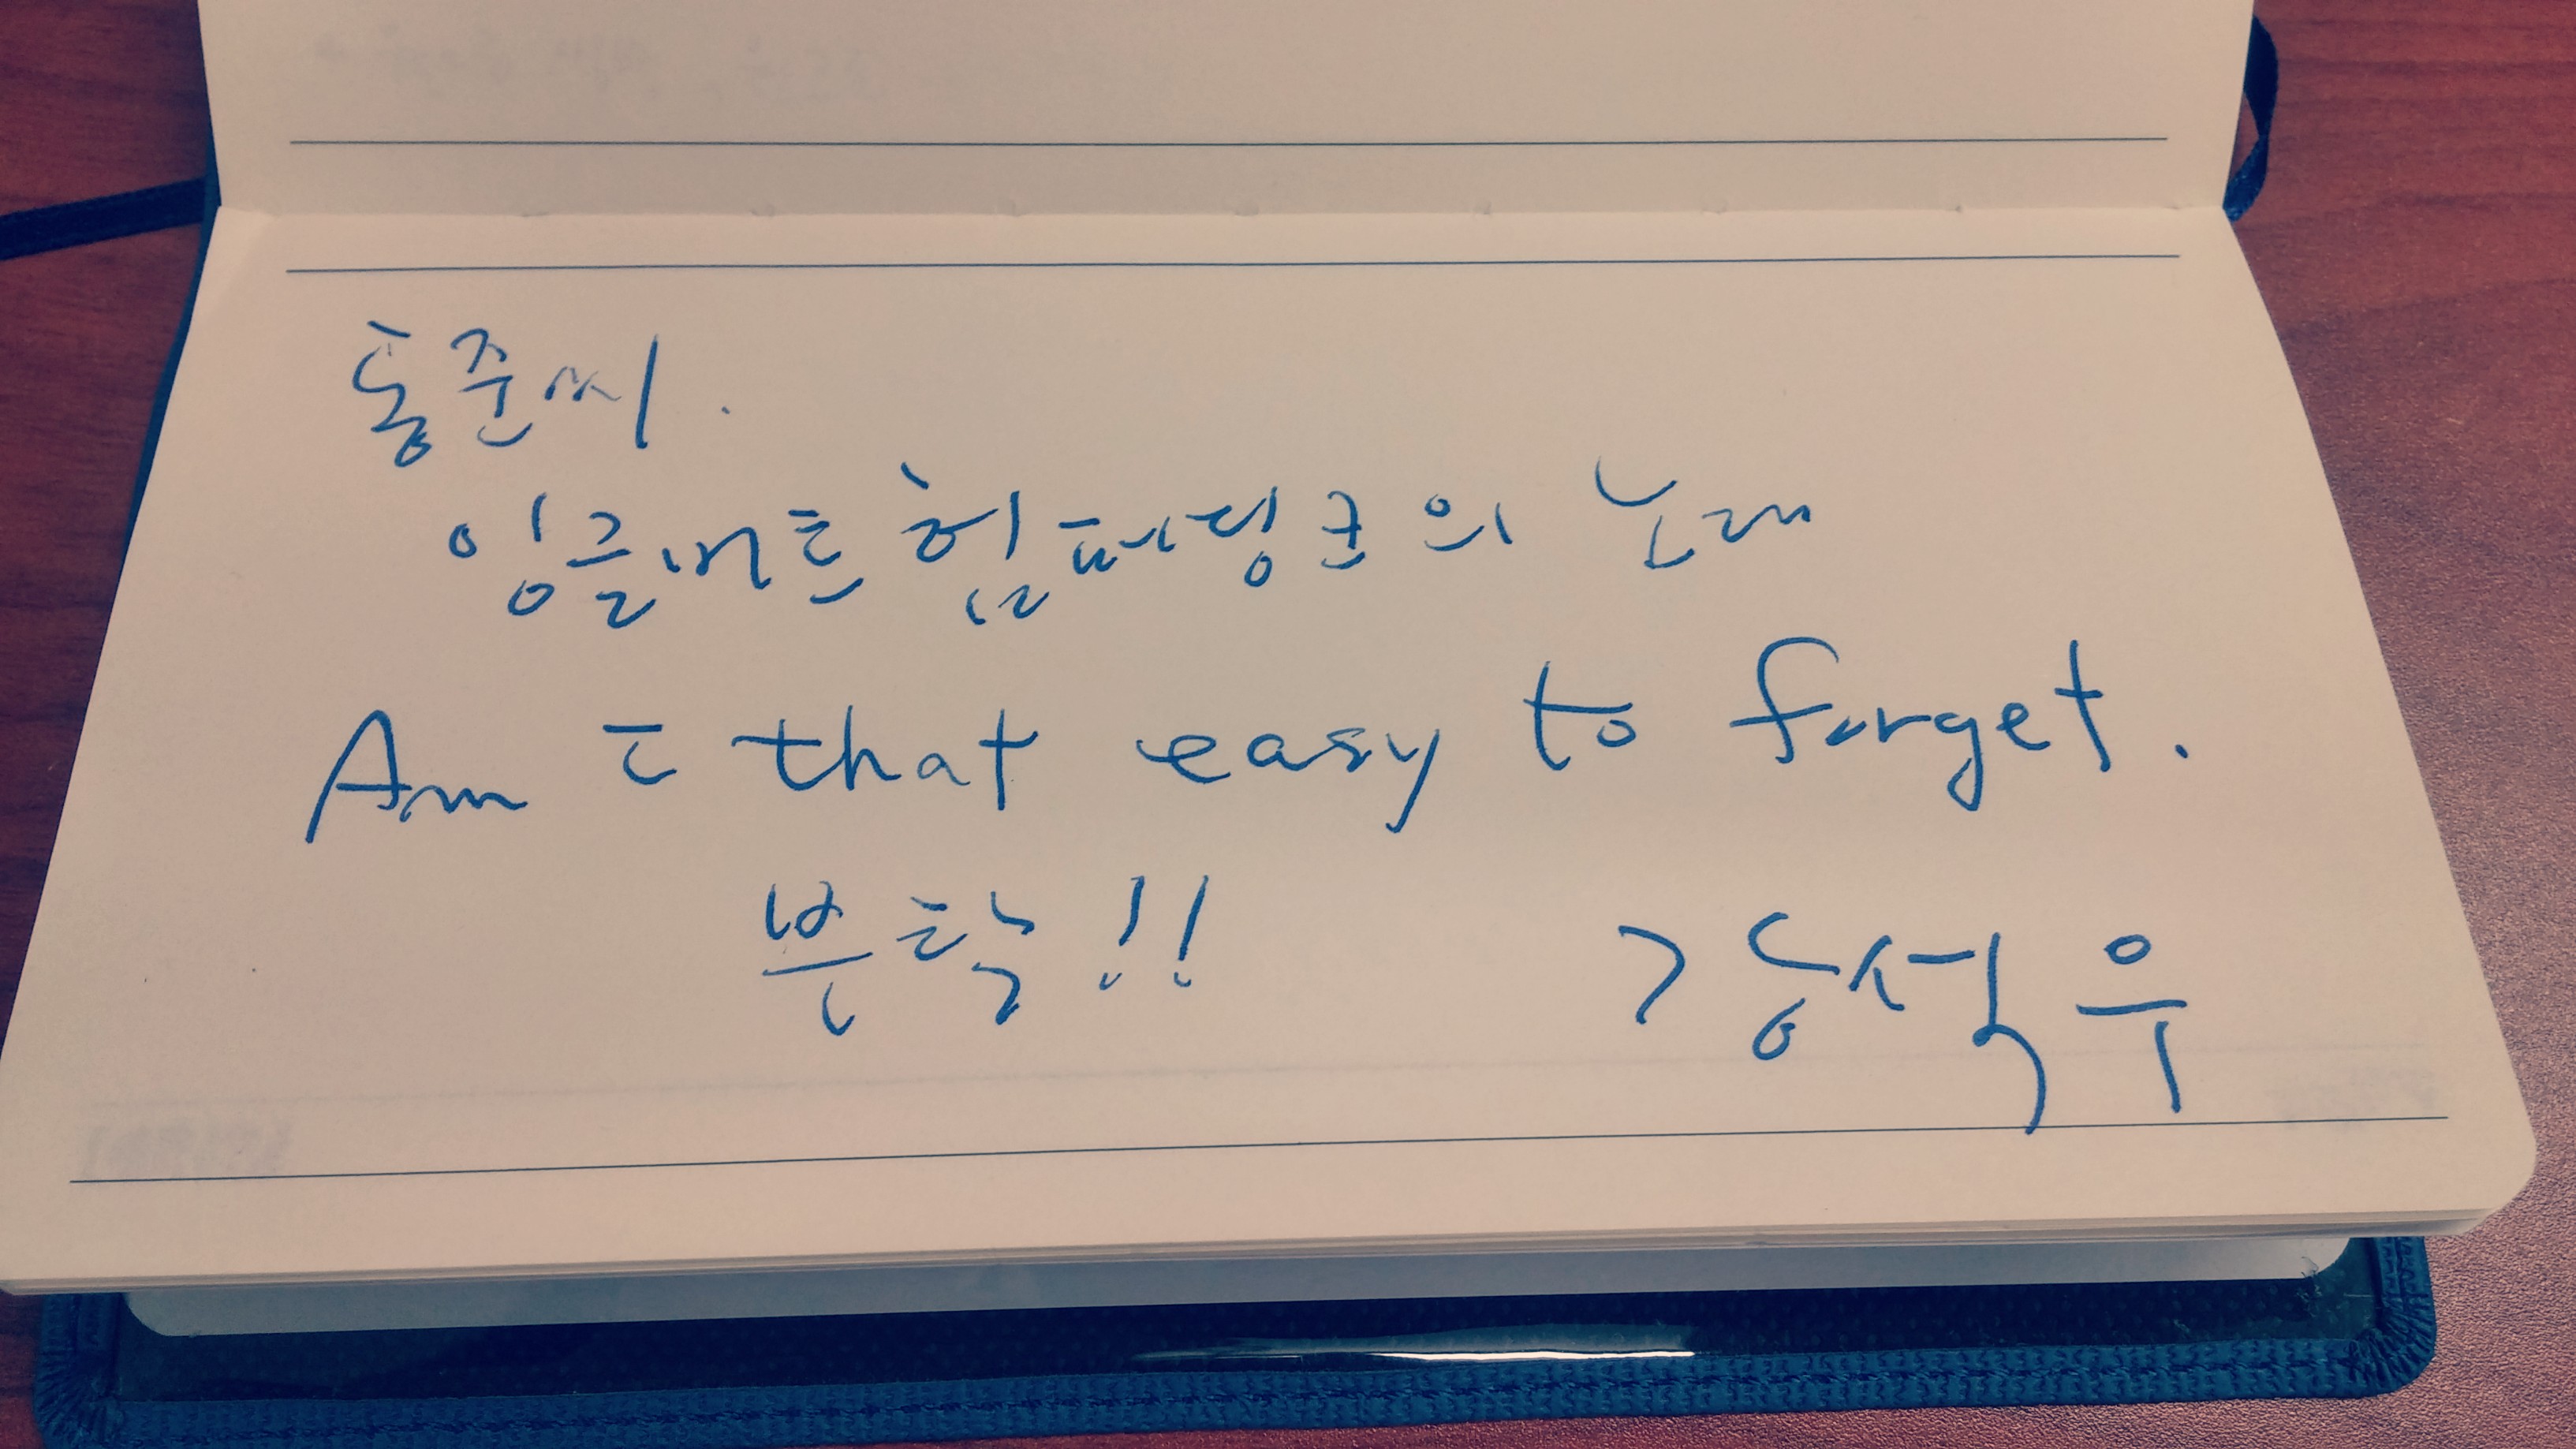 동준씨.
잉글버트 험퍼딩크의 노래
Am I that easy to forget.
부탁!! 강석우